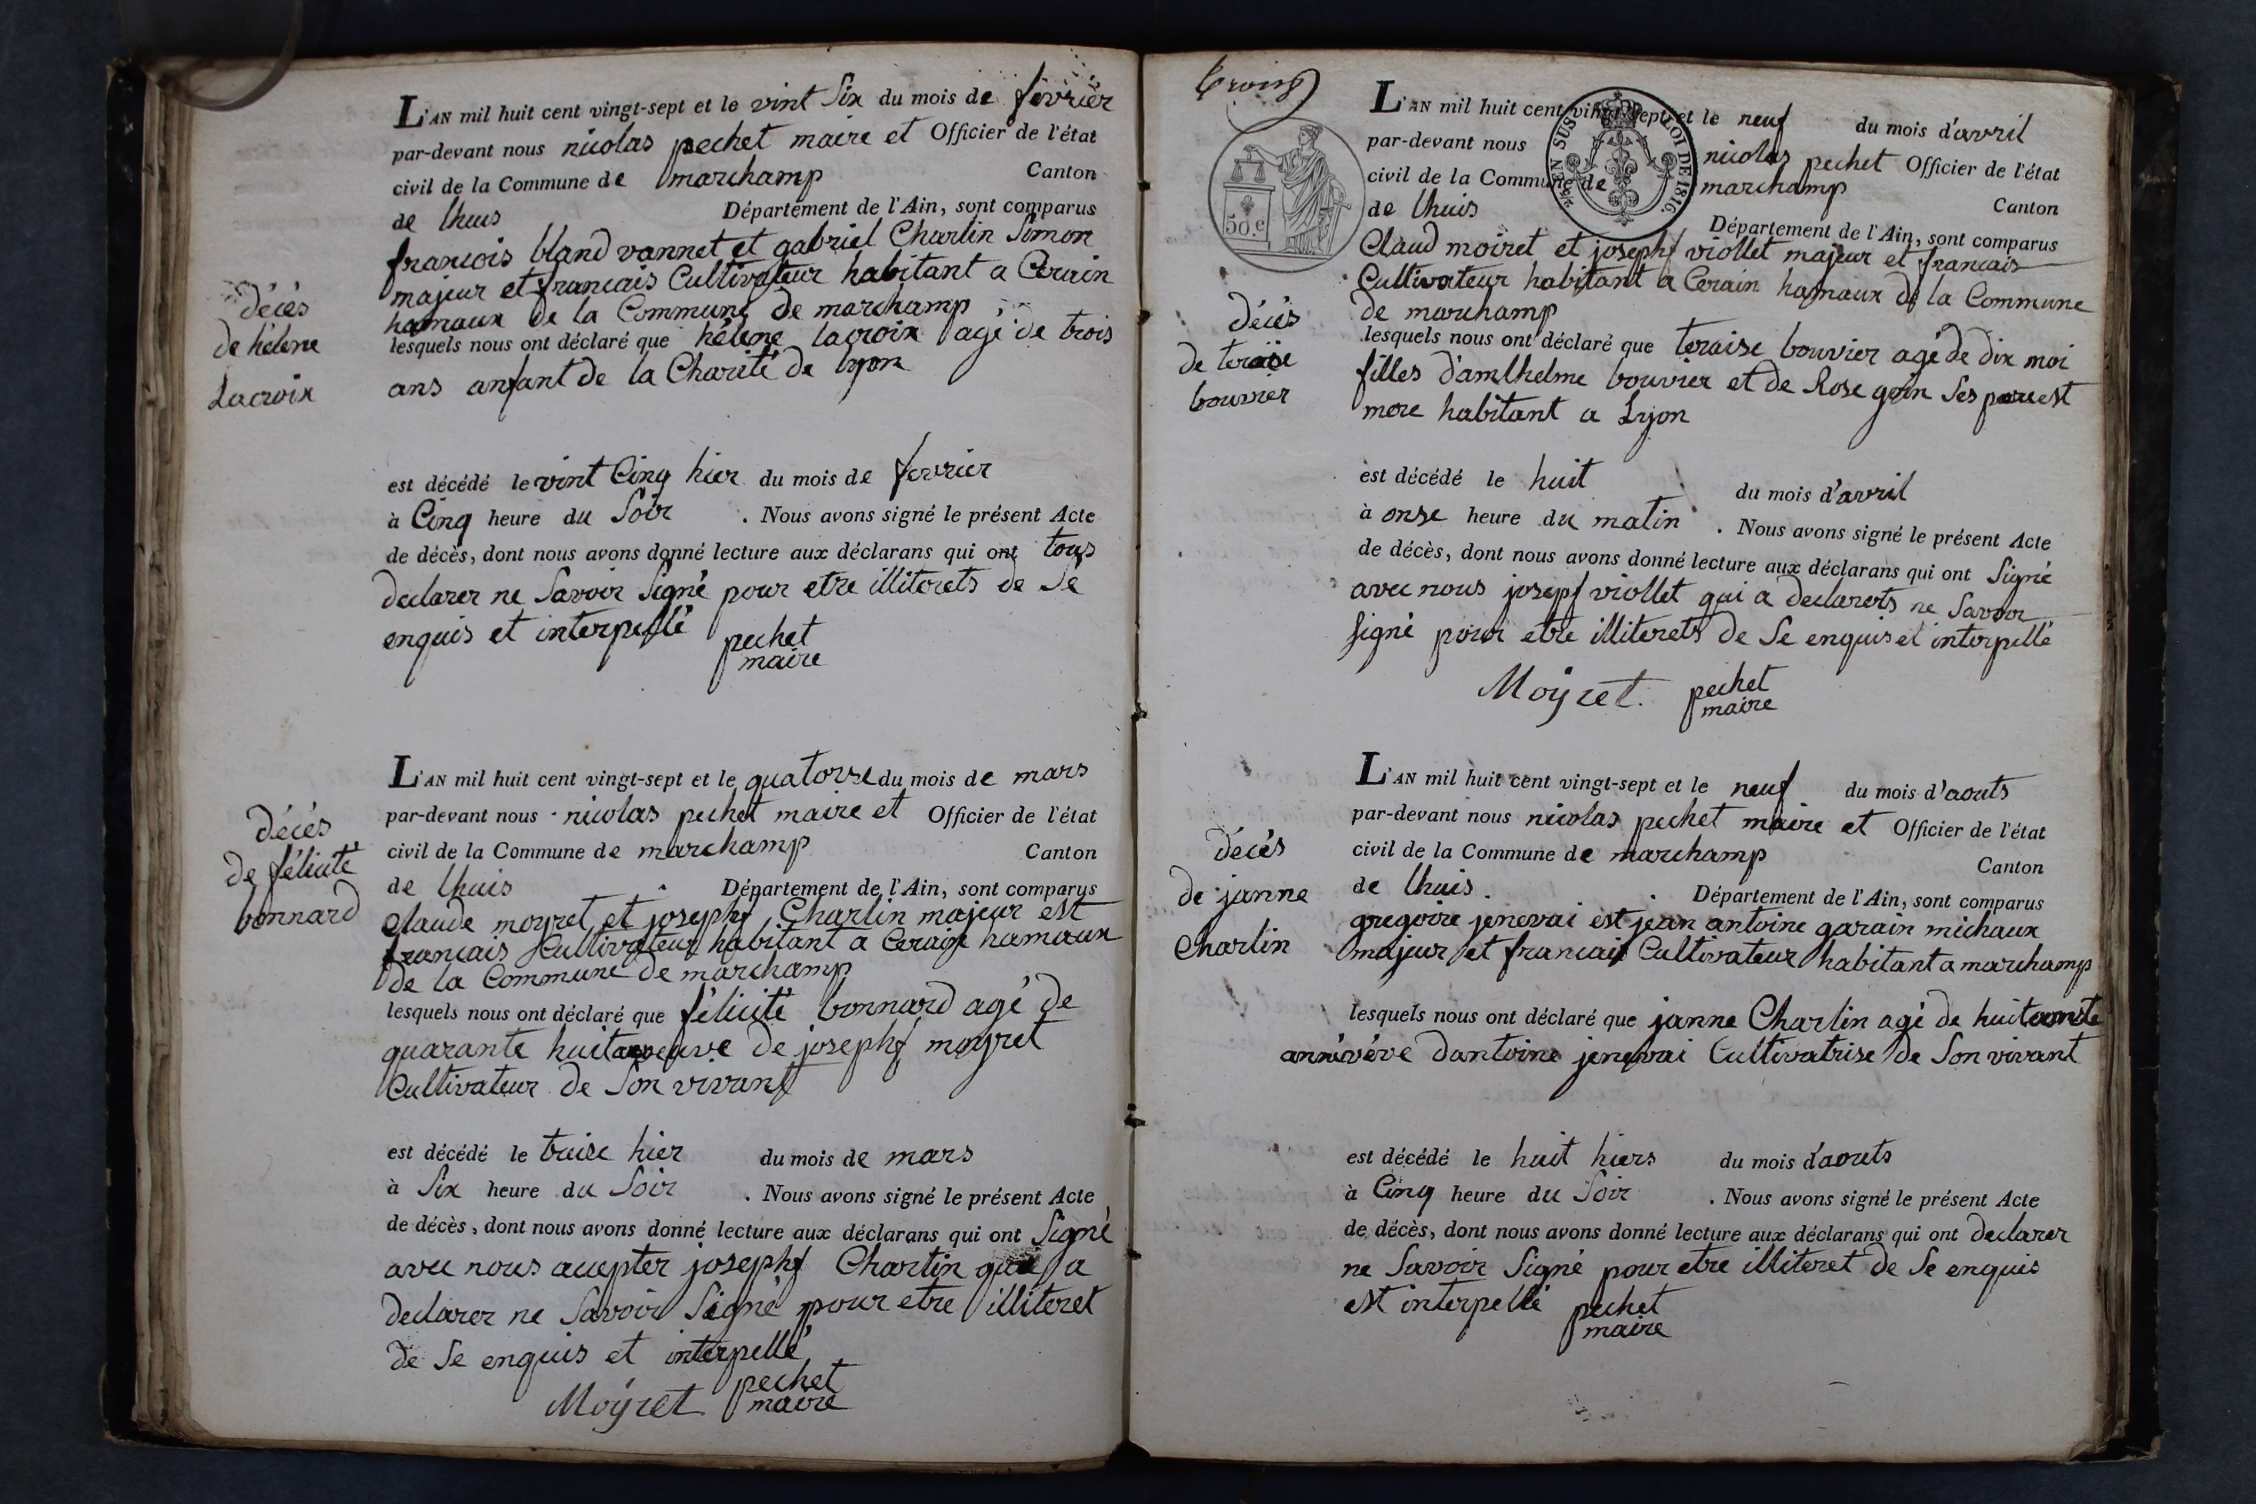 L'AN mil huit cent vingt-sept et le vint Six du mois de fevrier
par-devant nous nicolas pechet maire et Officier de l'état
civil de la Commune de marchamp Canton
de lhuis Département de l'Ain, sont comparus
francois bland vannet et gabriel Charlin Simon
majeur et francais Cultivateur habitant a Cerain
hamaux de la Commune de marchamp
décés
de hélene
Lacroix
lesquels nous ont déclaré que hélene lacroix agé de trois
ans anfant de la Charité de lyon
est décédé le vint Cinq hier du mois de fevrier
à Cinq heure du Soir . Nous avons signé le présent Acte
de décès, dont nous avons donné lecture aux déclarans qui ont tous
declarer ne Savoir Signé pour etre illiterets de Se
enquis et interpellé pechet
maire
L'AN mil huit cent vingt-sept et le quatorze du mois de mars
par-devant nous nicolas pechet maire et Officier de l'état
civil de la Commune de marchamp Canton
de lhuis Département de l'Ain, sont comparus
décés
de félicité
bonnard
Claude moyret et josephf Charlin majeur est
francais Cultivateur habitant a Cerain hamaux
de la Commune de marchamp
lesquels nous ont déclaré que félicité bonnard agé de
quarante huit veuve de josephf moyret
Cultivateur de Son vivant
est décédé le traise hier du mois de mars
à Six heure du Soir . Nous avons signé le présent Acte
de décès, dont nous avons donné lecture aux déclarans qui ont Signé
avec nous acepter josephf Charlin qui a
declarer ne Savoir Signé pour etre illiteret
de Se enquis et interpellé
pechet
Moÿret maire
trois
L'AN mil huit cent vingt-sept et le neuf du mois d'avril
par-devant nous nicolas pechet Officier de l'état
civil de la Commune de marchamp Canton
de lhuis Département de l'Ain, sont comparus
TIMBRE EN SUS LOI DE 1816.
50.c
Claud moiret et josephf viollet majeur et francais
Cultivateur habitant a Cerain hamaux de la Commune
de marchamp
décés
de teraise
bouvier
lesquels nous ont déclaré que teraise bouvier agé de dix moi
filles d'amlhelme bouvier et de Rose goin Ses pere est
mere habitant a Lyon
est décédé le huit du mois d'avril
à onse heure du matin . Nous avons signé le présent Acte
de décès, dont nous avons donné lecture aux déclarans qui ont Signé
avec nous josepf viollet qui a declarerts ne Savoir
Signé pour etre illiterets de Se enquis et interpellé
Moÿret. pechet
maire
L'AN mil huit cent vingt-sept et le neuf du mois d'aouts
par-devant nous nicolas pechet maire et Officier de l'état
civil de la Commune de marchamp Canton
de lhuis Département de l'Ain, sont comparus
décés
de janne
Charlin
gregoire jenevai est jean antoine garain michaux
majeur et francais Cultivateur habitant a marchamp
lesquels nous ont déclaré que janne Charlin agé de huitante
an véve dantoine jenevai Cultivatrise de Son vivant
est décédé le huit hiers du mois d'aouts
à Cinq heure du Soir . Nous avons signé le présent Acte
de décès, dont nous avons donné lecture aux déclarans qui ont declarer
ne Savoir Signé pour etre illiteret de Se enquis
est interpellé pechet
maire